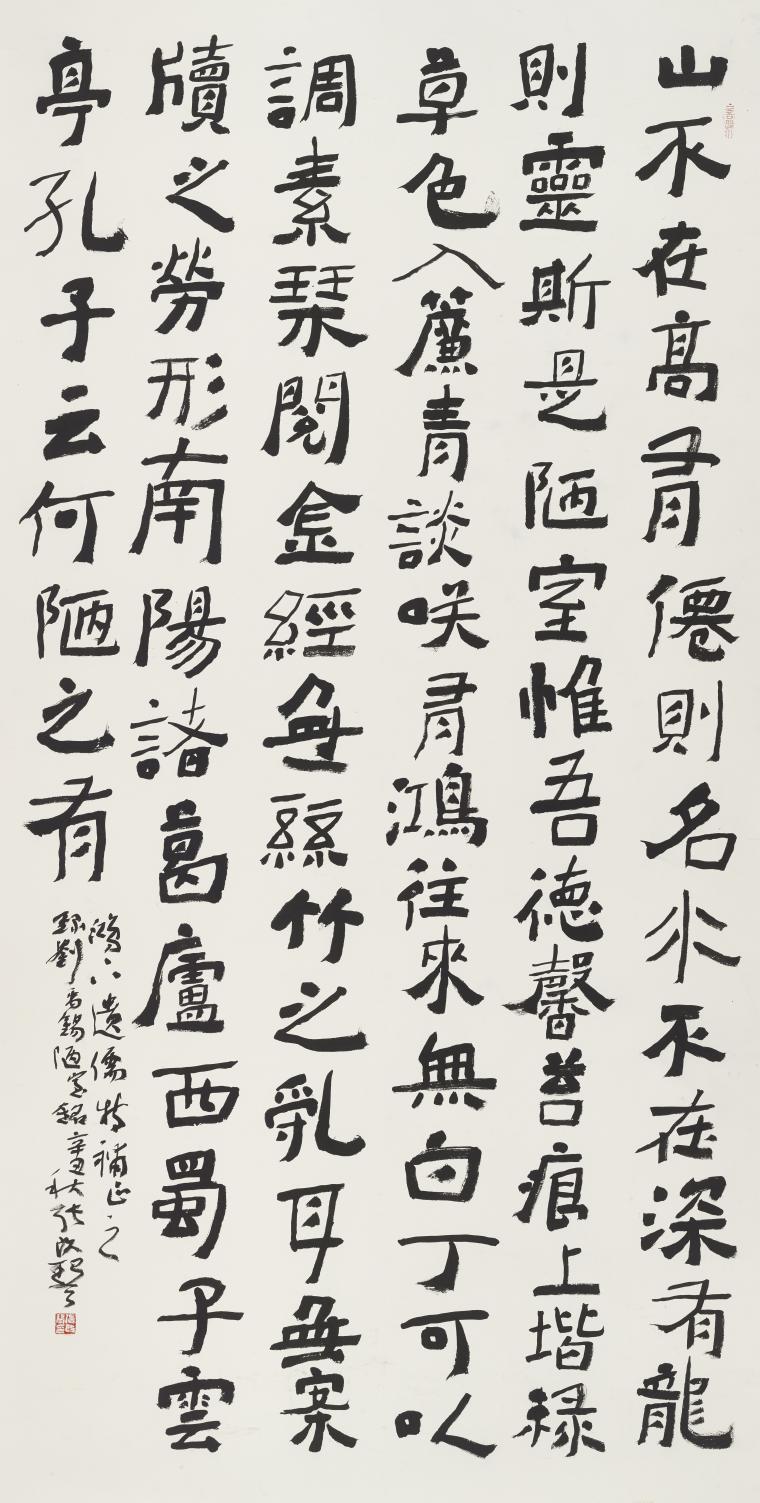 山不在高有僊則名水不在深有龍
則靈斯是陋室惟吾德馨苔痕上堦緑
草色入簾青談咲有鴻往來無白丁可以
調素琹閱金經無絲竹之亂耳無案
牘之勞形南陽諸葛廬西蜀子雲
亭孔子云何陋之有
鴻下遺儒特補正之
錄劉禹錫陋室銘辛丑秋張改琴